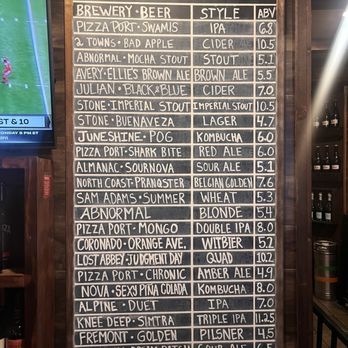 BREWERY • BEER STYLE ABV
PIZZA PORT • SWAMIS IPA 6.8
2 TOWNS • BAD APPLE CIDER 10.5
ABNORMAL • MOCHA STOUT STOUT 5.1
AVERY • ELLIE'S BROWN ALE BROWN ALE 5.5
JULIAN • BLACK & BLUE CIDER 7.0
STONE • IMPERIAL STOUT IMPERIAL STOUT 10.5
STONE • BUENAVEZA LAGER 4.7
JUNESHINE • POG KOMBUCHA 6.0
PIZZA PORT • SHARK BITE RED ALE 6.0
ALMANAC • SOURNOVA SOUR ALE 5.1
NORTH COAST • PRANQSTER BELGIAN GOLDEN 7.6
SAM ADAMS • SUMMER WHEAT 5.3
ABNORMAL BLONDE 5.4
PIZZA PORT • MONGO DOUBLE IPA 8.0
CORONADO • ORANGE AVE. WITBIER 5.2
LOST ABBEY • JUDGMENT DAY QUAD 10.2
PIZZA PORT • CHRONIC AMBER ALE 4.9
NOVA • SEXY PIÑA COLADA KOMBUCHA 8.0
ALPINE • DUET IPA 7.0
KNEE DEEP • SIMTRA TRIPLE IPA 11.25
FREMONT • GOLDEN PILSNER 4.5
ST & 10
MONDAY 5 PM ET